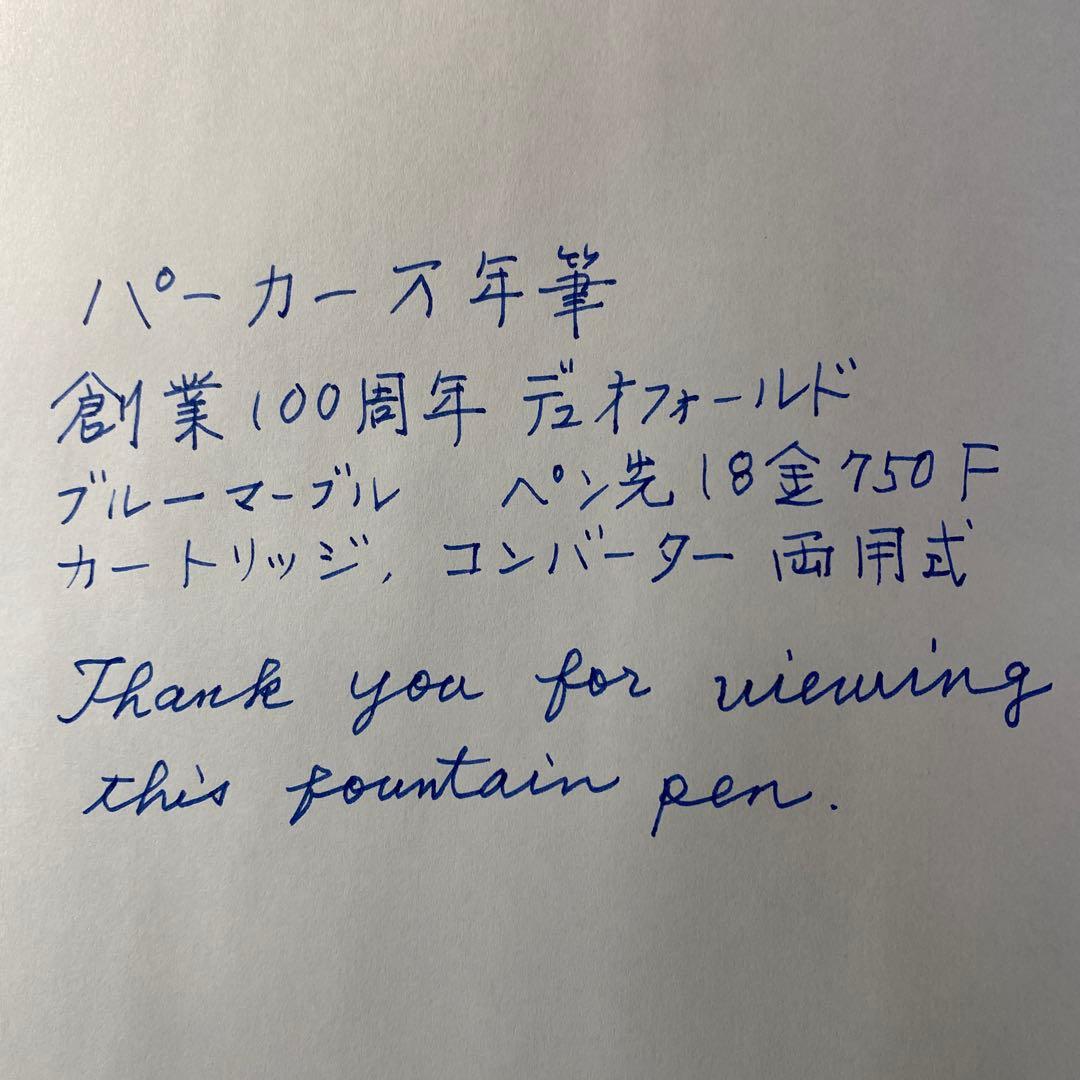 パーカー万年筆
創業100周年 デュオフォールド
ブルーマーブル ペン先18金750F
カートリッジ、コンバーター両用式
Thank you for viewing
this fountain pen.